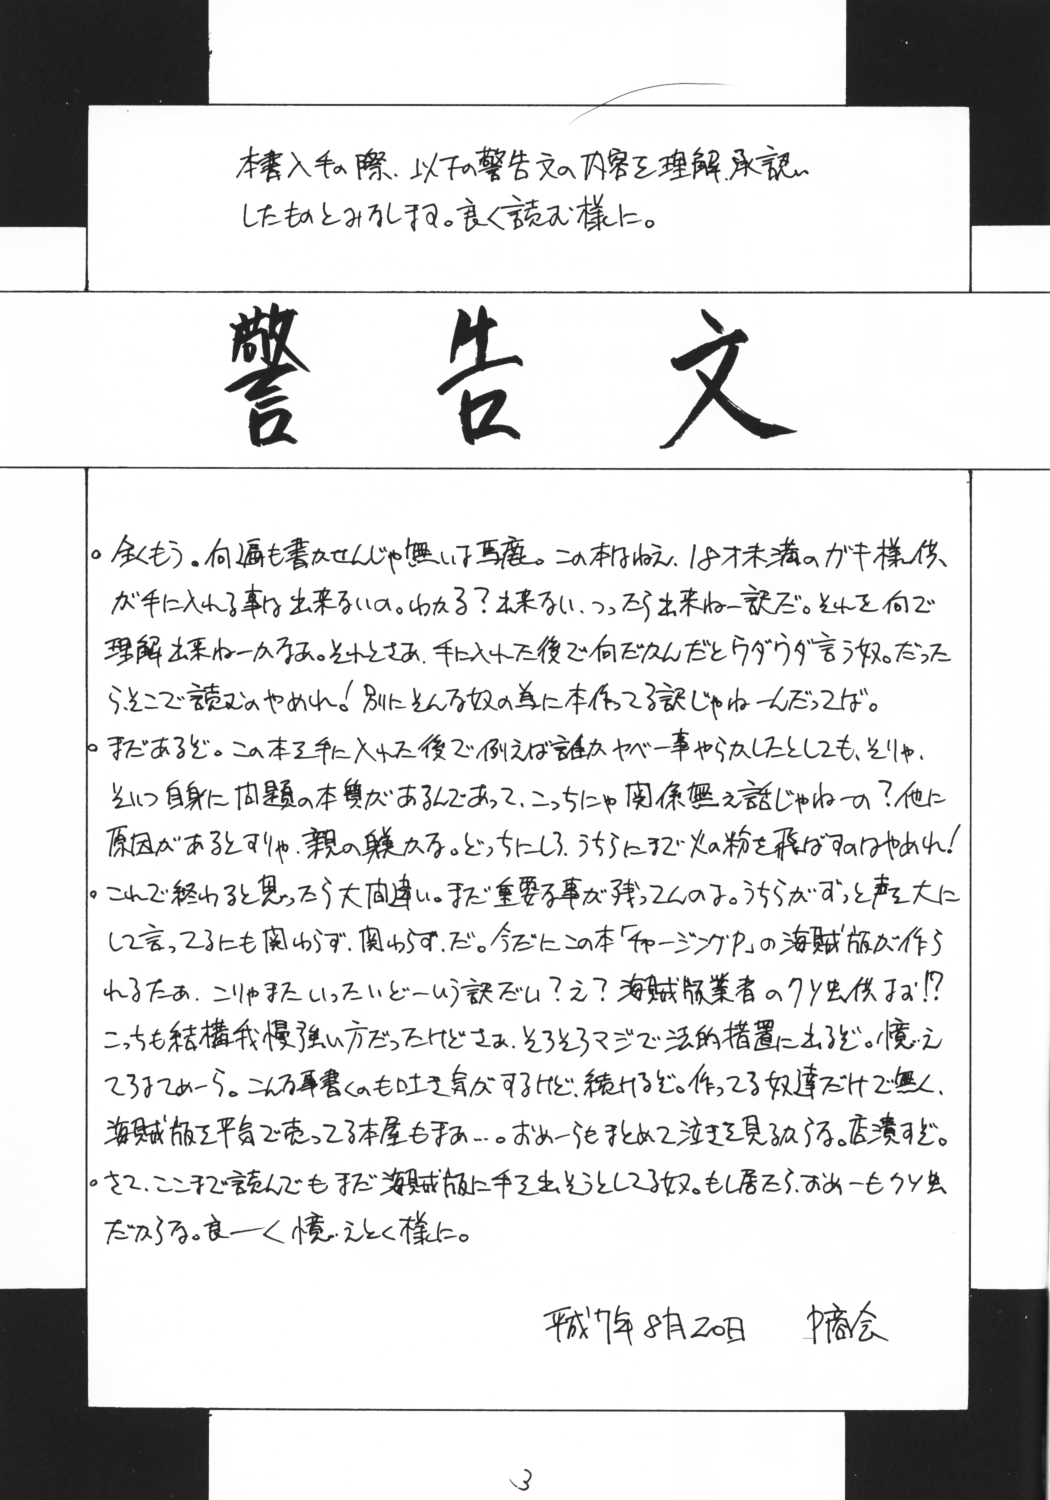 本書入手の際、以下の警告文の内容を理解、承認い
したものとみなします。良く読む様に。
警告文
。全くもう。何遍も書かせんじゃ無いよ馬鹿。この本はねえ、18才未満のガキ様供、
が手に入れる事は出来ないの。わかる？出来ない、つったら出来ねー訳だ。それを何で
理解出来ねーかなあ。それとさあ、手に入れた後で何だかんだとウダウダ言う奴。だった
ら、そこで読むのやめれ！別にそんな奴の為に本作ってる訳じゃねーんだってば。
。まだあるぞ。この本を手に入れた後で例えば誰かヤベー事やらかしたとしても、そりゃ、
そいつ自身に問題の本質があるんであって、こっちにゃ関係無え話じゃねーの？他に
原因があるとすりゃ、親の躾かな。どっちにしろ、うちらにまで火の粉を飛ばすのはやめれ！
。これで終わると思ったら大間違い。まだ重要な事が残ってんのよ。うちらがずっと声を大に
して言ってるにも関わらず、関わらず、だ。今だにこの本「チャージングP」の海賊版が作ら
れるたぁ、こりゃまたいったいどーいう訳だい？え？海賊版業者のクソ虫供よお!?
こっちも結構我慢強い方だったけどさあ、そろそろマジで法的措置に出るぞ。憶え
てろよてめーら。こんな事書くのも吐き気がするけど、続けるぞ。作ってる奴達だけで無く、
海賊版を平気で売ってる本屋もまあ…。おめーらもまとめて泣きを見るからな。店潰すぞ。
。さて、ここまで読んでもまだ海賊版に手を出そうとしてる奴。もし居たら、おめーもクソ虫
だからな。良ーく憶えとく様に。
平成7年8月20日 P商会
3